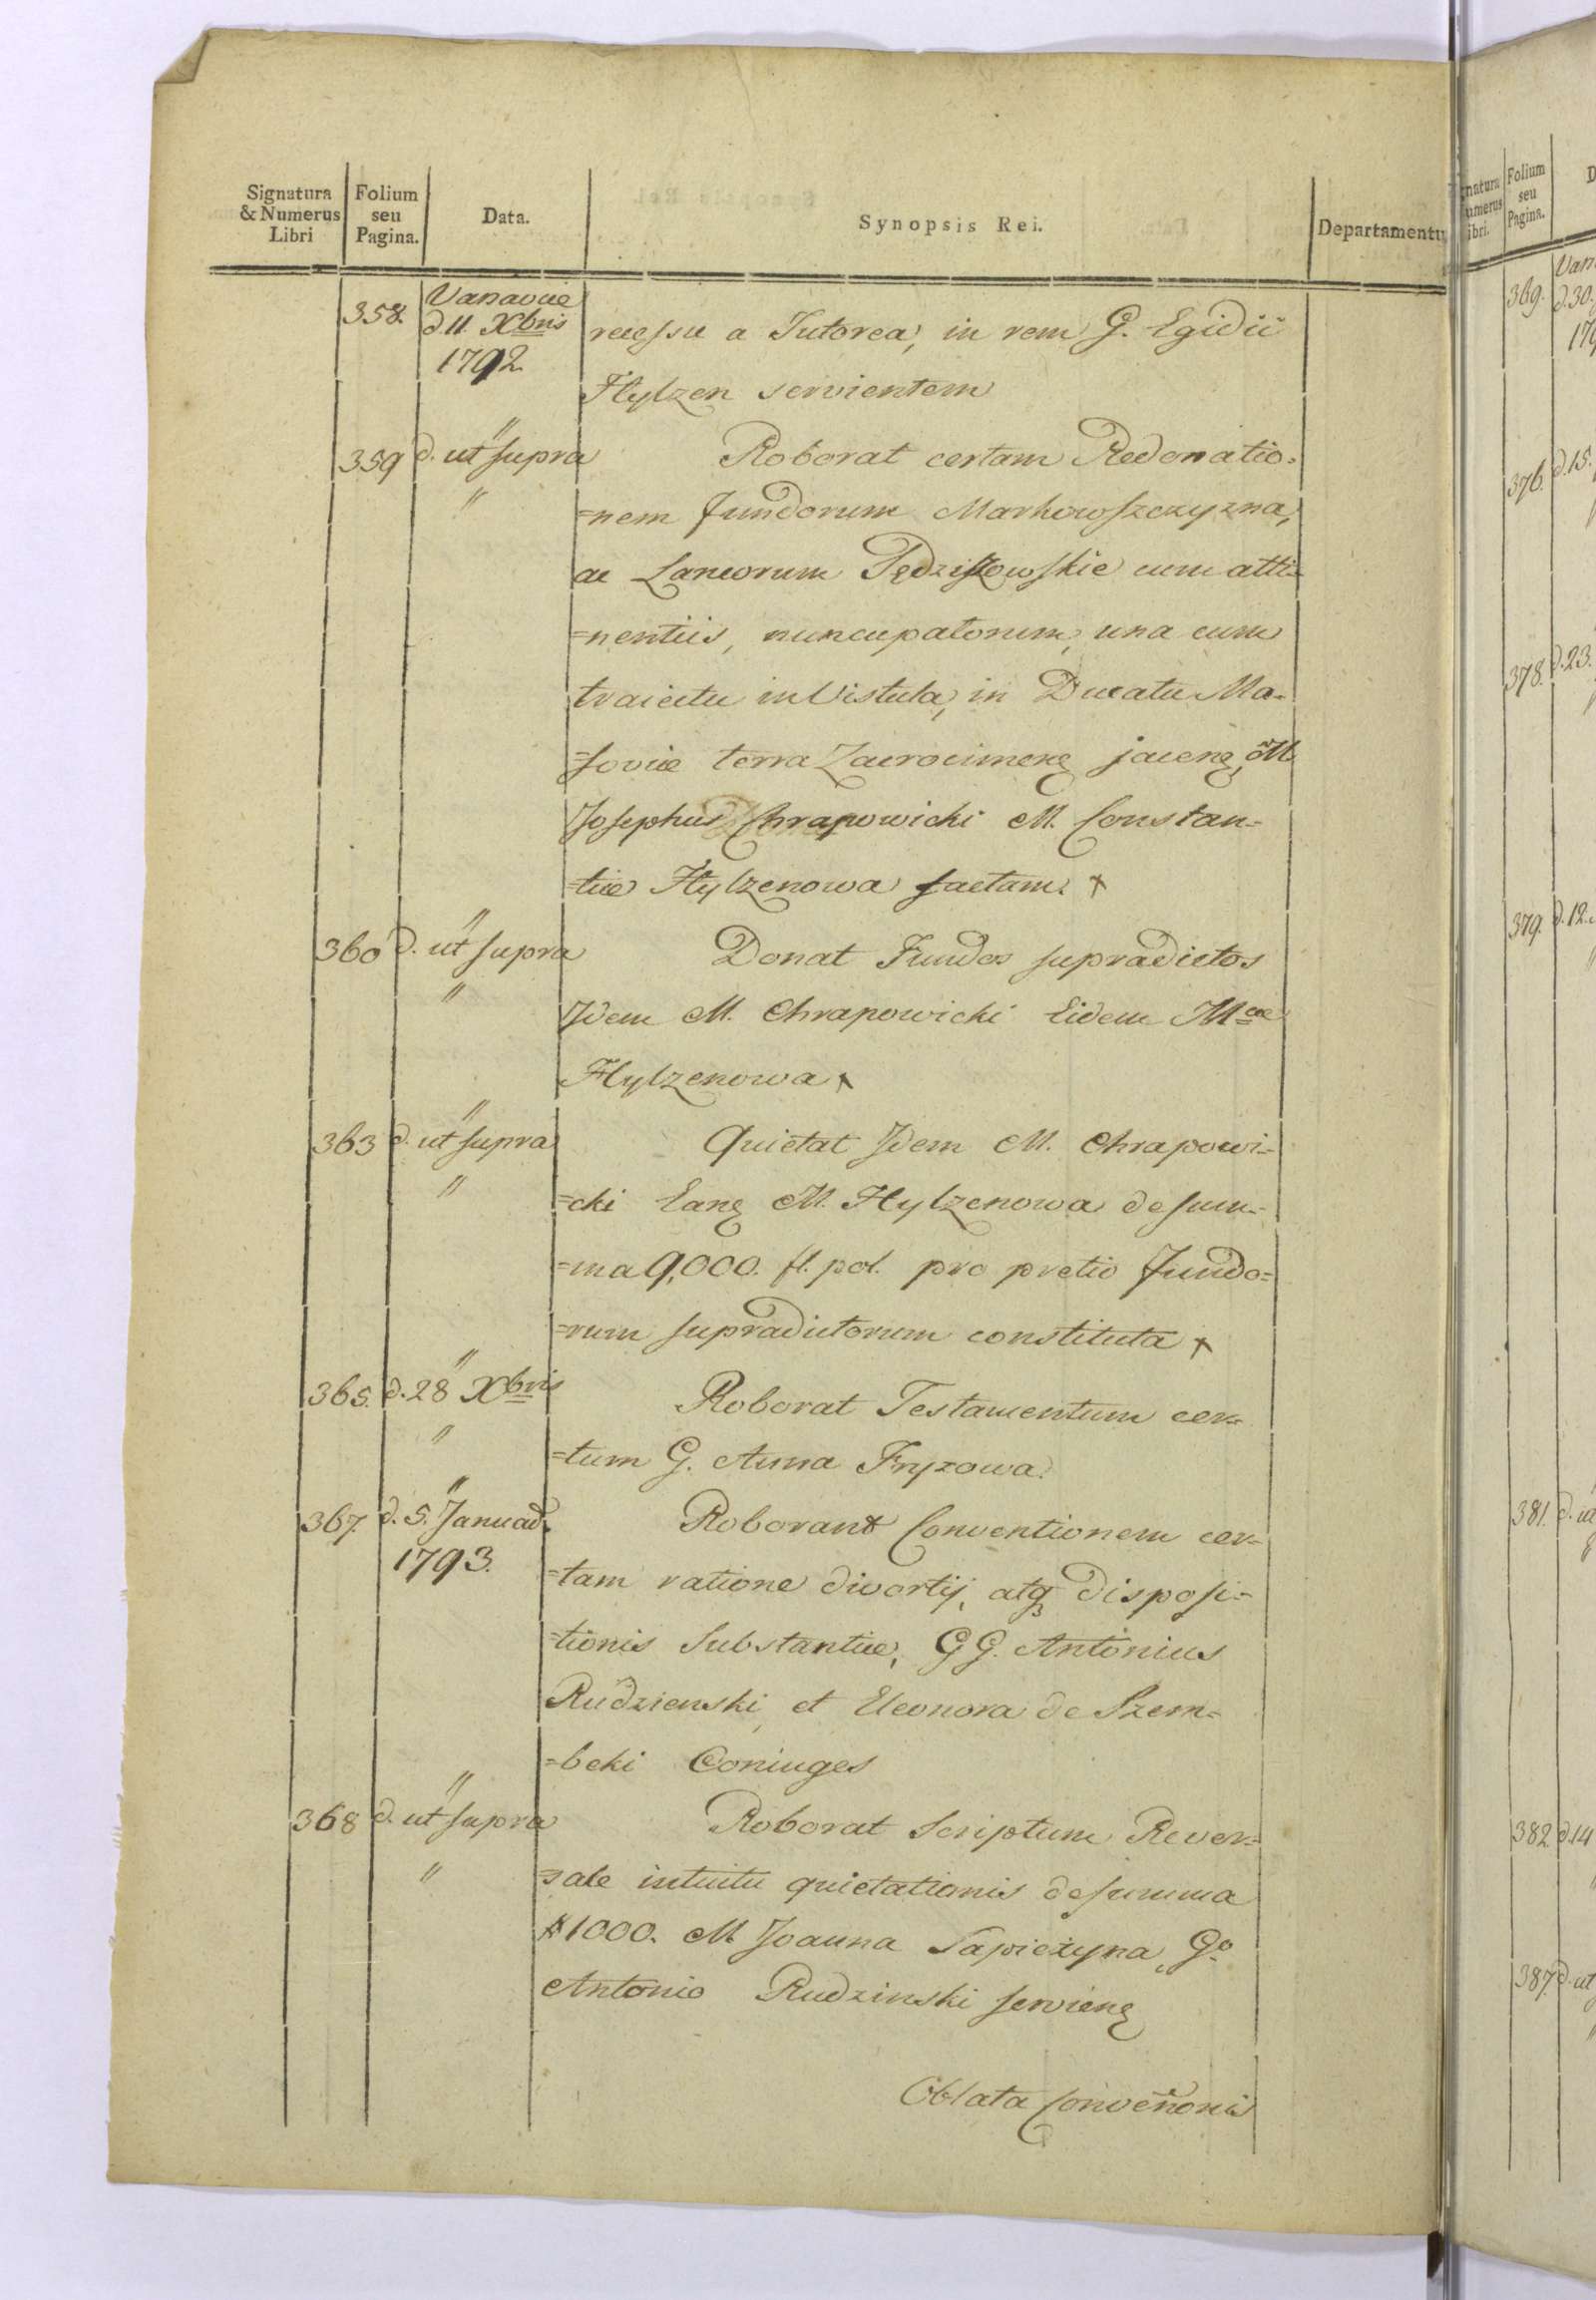 Signatura & Numerus Libri | Folium seu Pagina. | Data. | Synopsis Rei. | Departamentu
358. Varsaviae
d. 11. Xbris
1792.
recessu a Tutorea, in rem G. Egidii
Hylzen servientem
359 d. ut supra
Roborat certam Redonatio=
=nem fundorum Markowszczyzna,
ac Laneorum Pędziszowskie cum atti=
=nentiis, nuncupatorum, una cum
traiectu in Vistula, in Ducatu Ma=
=soviae terra Zacrocimenę jacenę, M.
Josephus Chrapowicki M. Constan=
=tiae Hylzenowa factam. +
360 d. ut supra
Donat Fundos supradictos
Idem M. Chrapowicki Eidem Mcae
Hylzenowa +
363 d. ut supra
Quietat Idem M. Chrapowi=
=cki Eanę M. Hylzenowa de sum=
=ma 9,000. fl. pol. pro pretio fundo=
=rum supradictorum constituta +
365. d. 28 Xbris
Roborat Testamentum cer=
=tum G. Anna Fryzowa.
367. d. 5. Januar.
1793.
Roborant Conventionem cer=
=tam ratione divortij, atq3 disposi=
=tionis Substantiae, GG. Antonius
Rudzienski, et Eleonora de Szem=
=beki Coniuges
368 d. ut supra
Roborat Scriptum Rever=
=sale intuitu quietationis de summa
# 1000. M. Joanna Sapieżyna, Go
Antonio Rudzinski servienę
Oblata Conveñonis
natura umerus ibri. | Folium seu Pagina. | D
369. Van.
d. 30.
179
376. d. 15.
378. d. 23.
379. d. 12.
381. d. ut
382. d. 14
387. d. ut